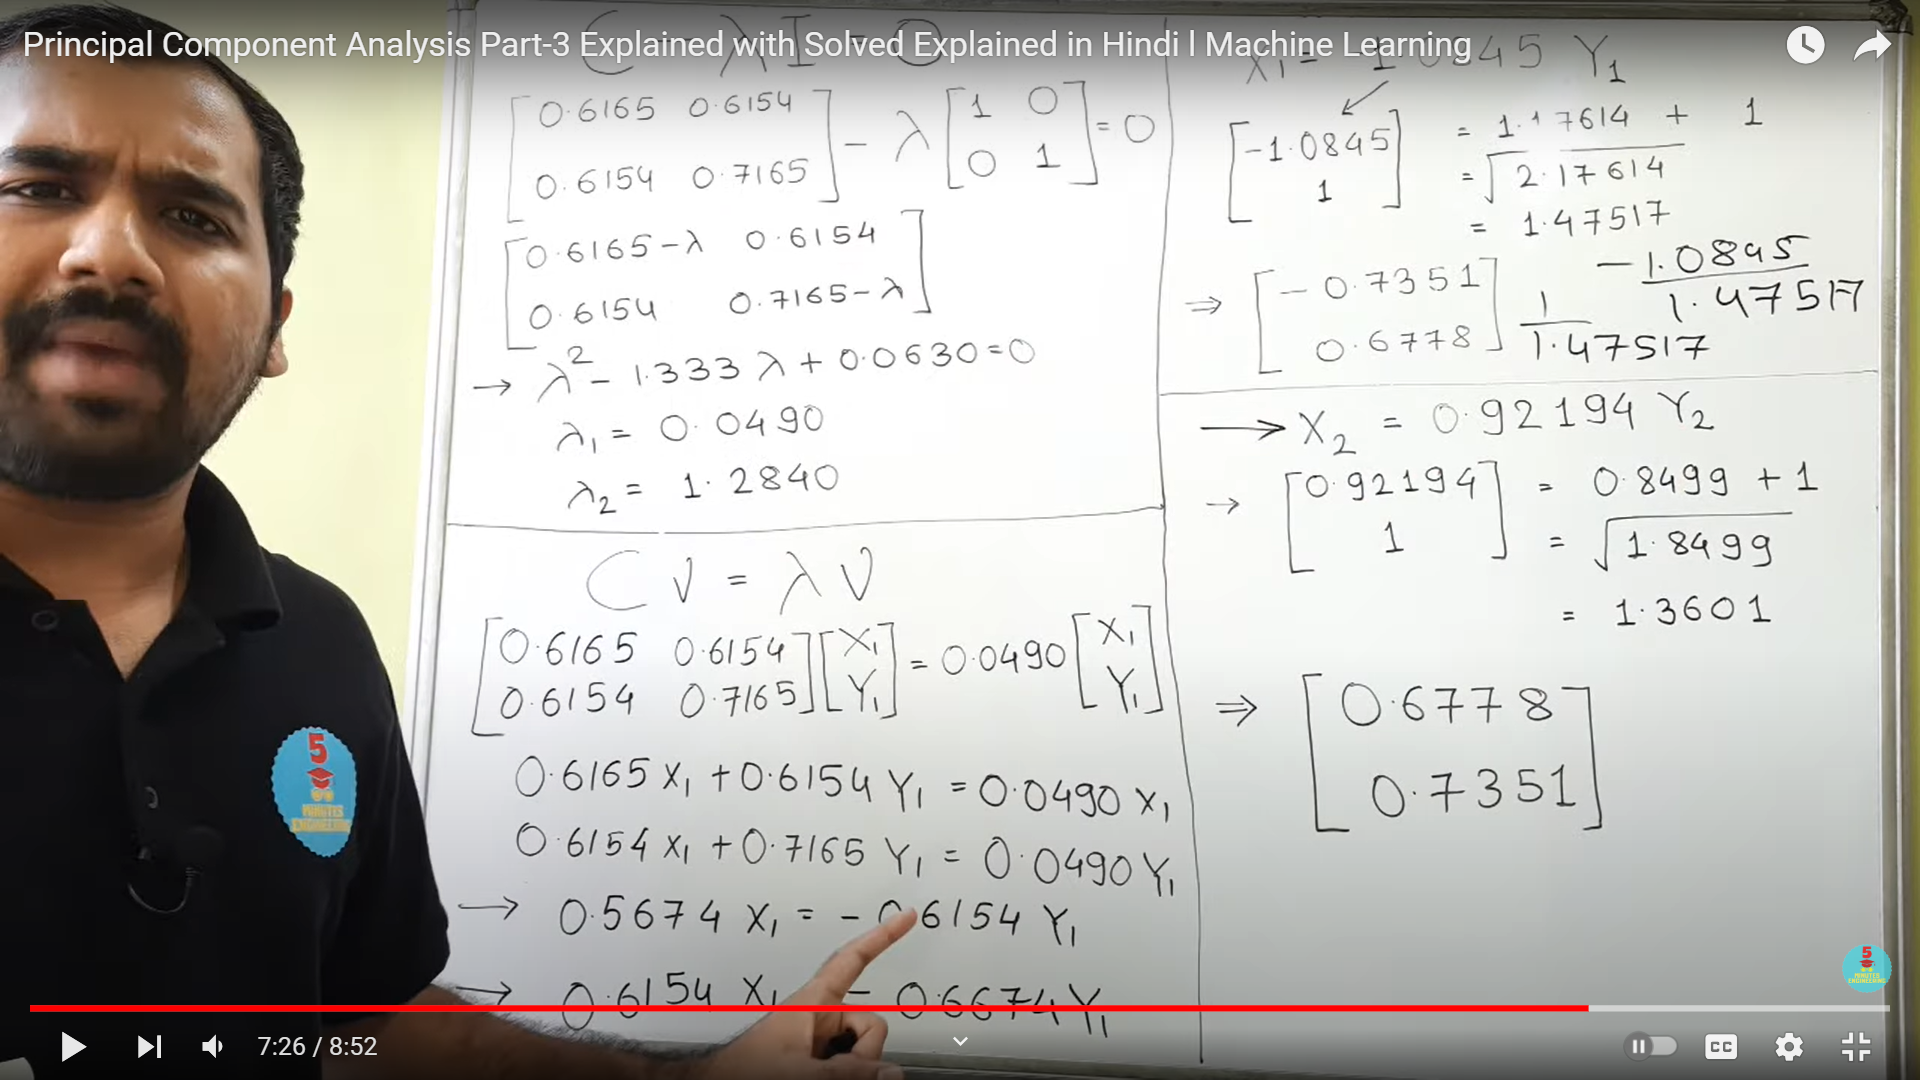 Principal Component Analysis Part-3 Explained with Solved Explained in Hindi l Machine Learning
C - λI = 0
[0.6165 0.6154
0.6154 0.7165] - λ [1 0
0 1] = 0
[0.6165-λ 0.6154
0.6154 0.7165-λ]
→ λ² - 1.333 λ + 0.0630 = 0
λ₁ = 0.0490
λ₂ = 1.2840
C V = λ V
[0.6165 0.6154
0.6154 0.7165] [X₁
Y₁] = 0.0490 [X₁
Y₁]
0.6165 X₁ + 0.6154 Y₁ = 0.0490 X₁
0.6154 X₁ + 0.7165 Y₁ = 0.0490 Y₁
→ 0.5674 X₁ = - 0.6154 Y₁
→ 0.6154 X₁ - 0.6674 Y₁
X₁ = - 1.0845 Y₁
[-1.0845
1]
= 1.17614 + 1
= √2.17614
= 1.47517
⇒ [-0.7351
0.6778]
-1.0845
1.47517
1
1.47517
→ X₂ = 0.92194 Y₂
→ [0.92194
1]
= 0.8499 + 1
= √1.8499
= 1.3601
⇒ [0.6778
0.7351]
5
MINUTES
ENGINEERING
5
MINUTES
ENGINEERING
7:26 / 8:52
CC